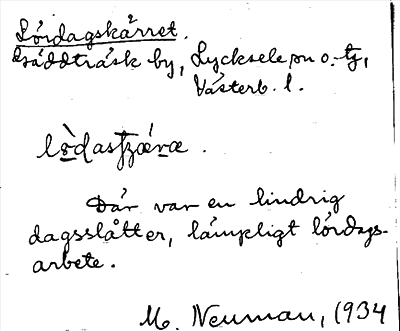 Lördagskärret.
Gäddträsk by, Lycksele sn o. tg,
Västerb. l.
lò̱dastʃǽ̱ræ.
Där var en lindrig
dagsslåtter, lämpligt lördags-
arbete.
M. Neuman, 1934